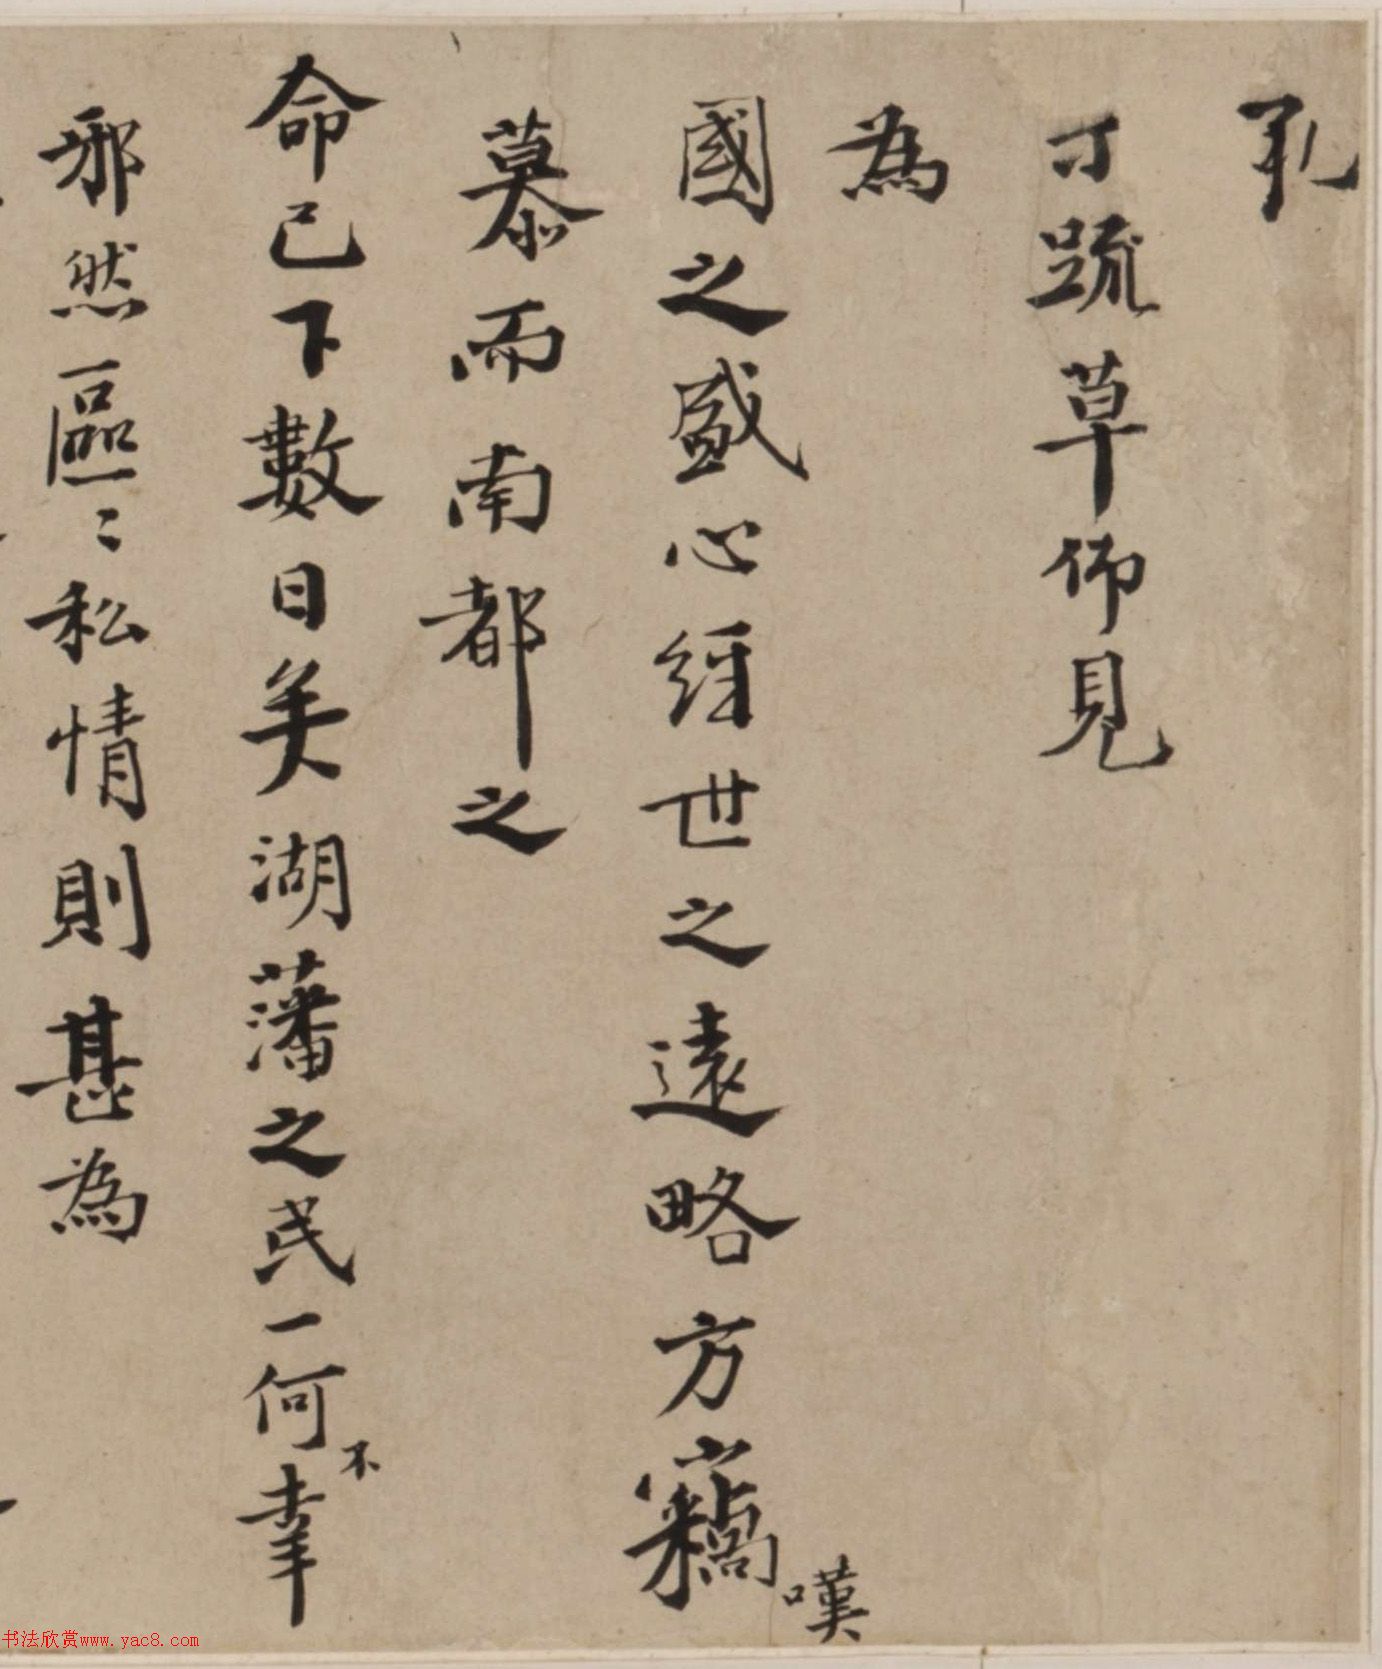 承
寸疏草仰見
為
國之盛心經世之遠略方竊嘆
慕而南都之
命已下數日矣湖藩之民一何不幸
邪然區〻私情則甚為
书法欣赏www.yac8.com